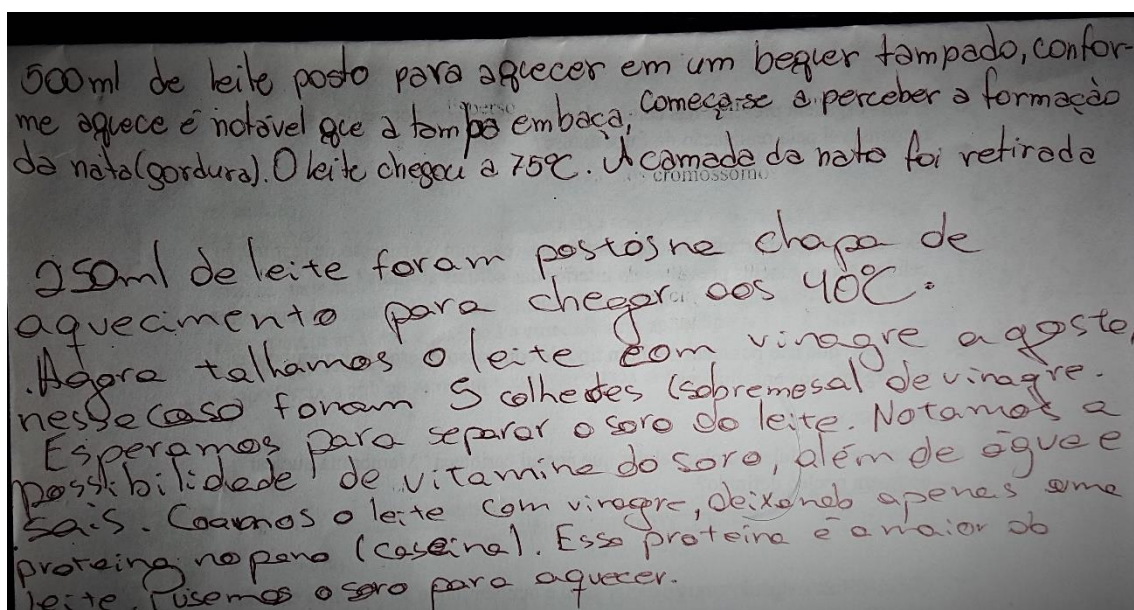 500ml de leite posto para aquecer em um bequer tampado, confor-
me aquece é notável que a tampa embaça, começa-se a perceber a formação
da nata (gordura). O leite chegou a 75°C. A camada da nata foi retirada
cromossomo
250ml de leite foram postos na chapa de
aquecimento para chegar aos 40°C.
.Agora talhamos o leite com vinagre a gosto,
nesse caso foram 5 colheres (sobremesa) de vinagre.
Esperamos para separar o soro do leite. Notamos a
possibilidade de vitamina do soro, além de água e
sais. Coamos o leite com vinagre, deixando apenas uma
proteína no pano (caseína). Essa proteína é a maior do
leite. Pusemos o soro para aquecer.